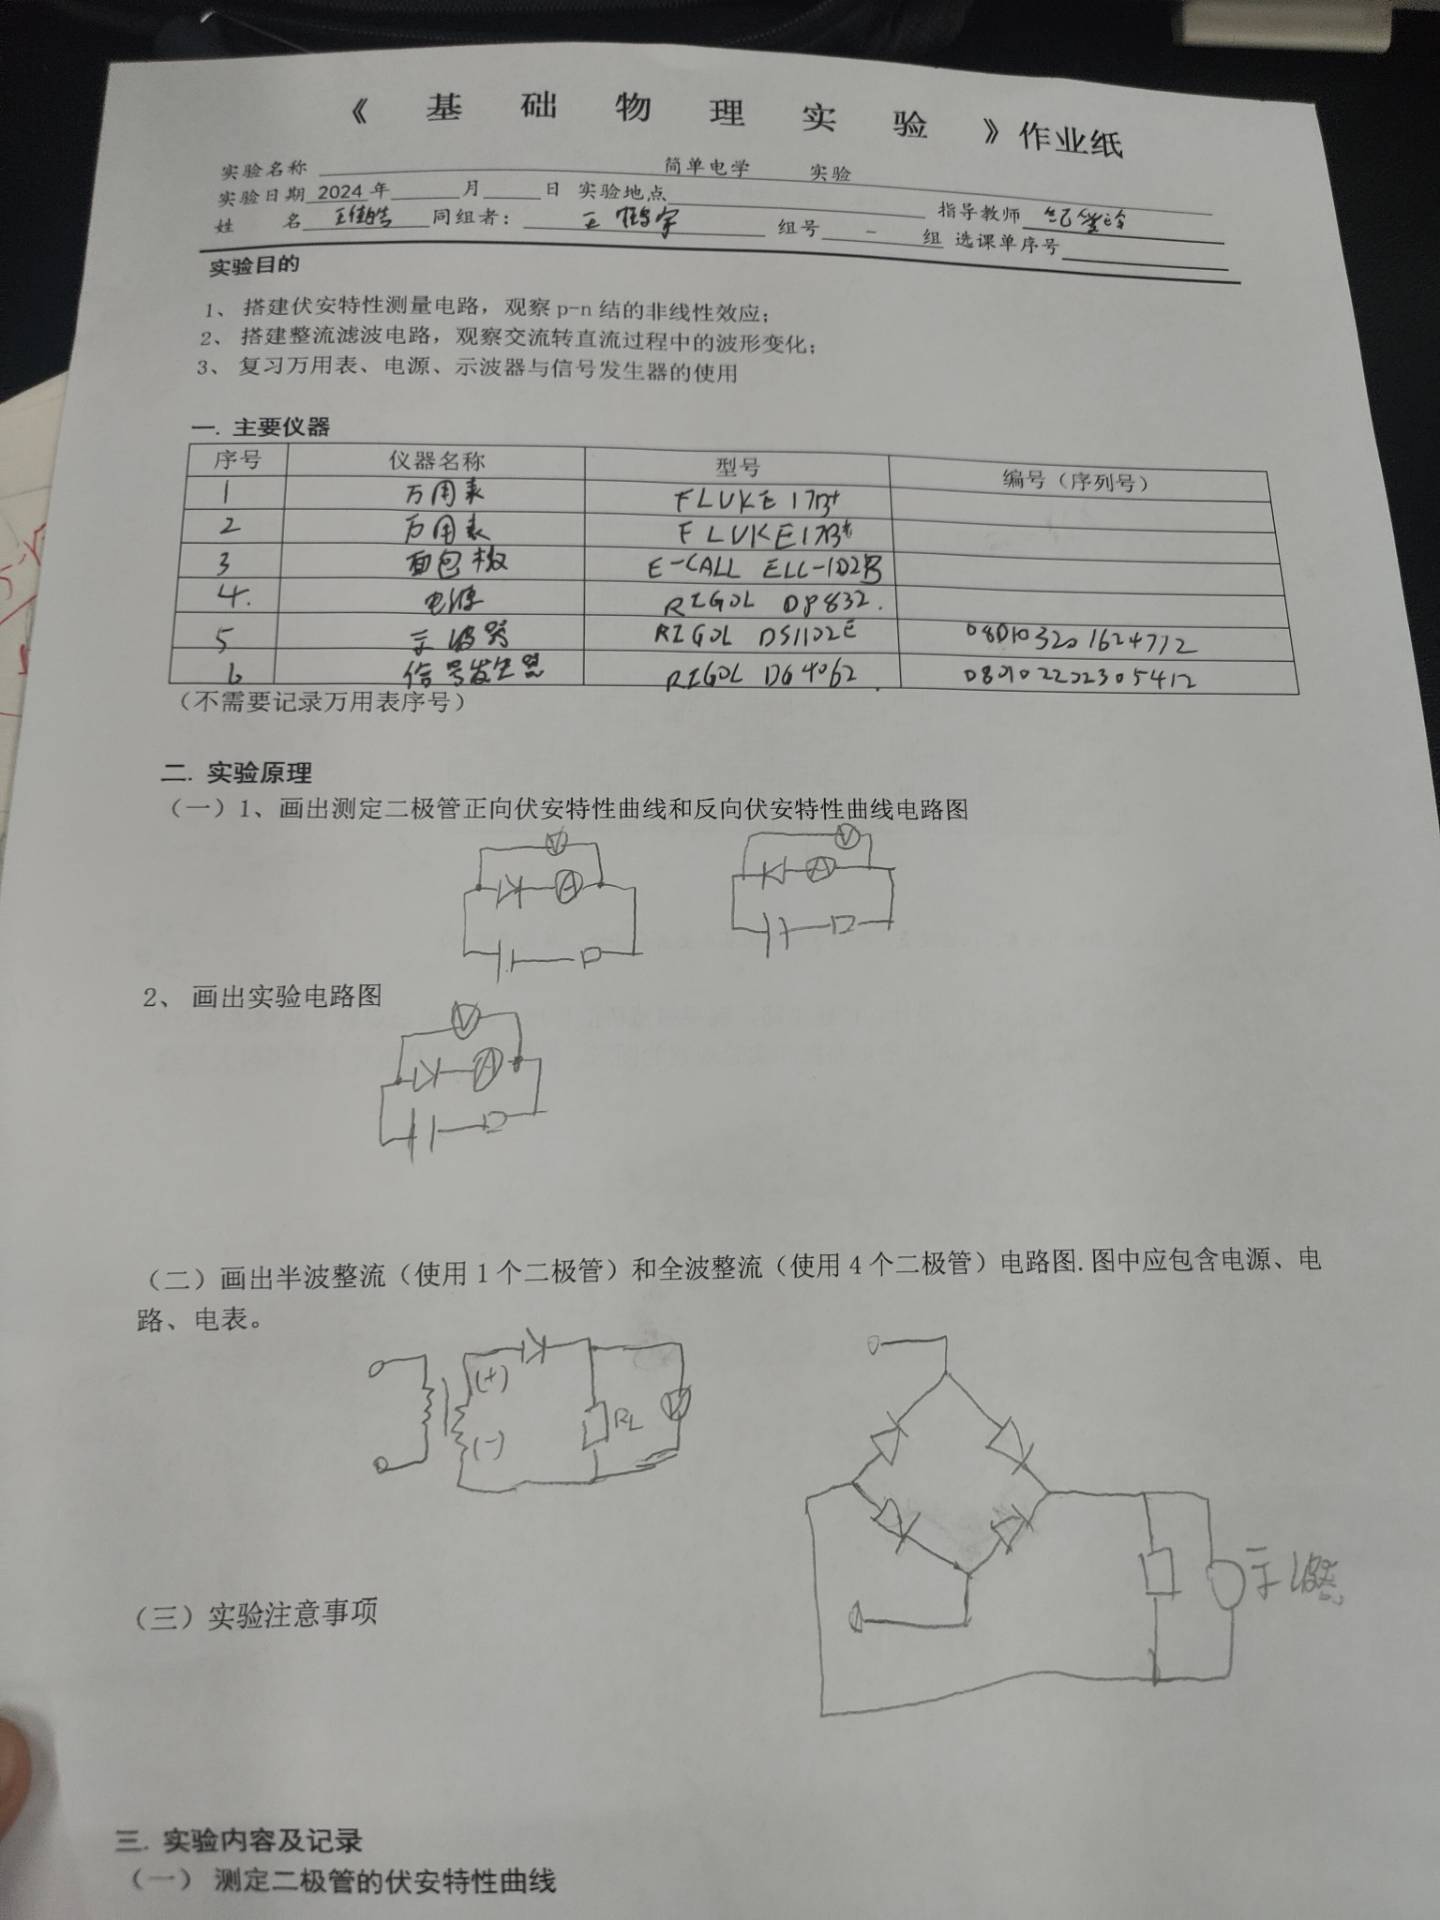 《 基 础 物 理 实 验 》作业纸
实验名称 简单电学 实验
实验日期 2024 年 月 日 实验地点 指导教师
姓 名 同组者： 王 组号 - 组 选课单序号
实验目的
1、 搭建伏安特性测量电路，观察 p-n 结的非线性效应；
2、 搭建整流滤波电路，观察交流转直流过程中的波形变化；
3、 复习万用表、电源、示波器与信号发生器的使用
一. 主要仪器
序号 仪器名称 型号 编号（序列号）
1 万用表 FLUKE 17B+
2 万用表 FLUKE 17B+
3 面包板 E-CALL ELL-102B
4. 电源 RIGOL DP832.
5 示波器 RIGOL DS1102E 080103201624712
6 信号发生器 RIGOL DG4062 080102202305412
（不需要记录万用表序号）
二. 实验原理
（一）1、画出测定二极管正向伏安特性曲线和反向伏安特性曲线电路图
V V
A A
2、 画出实验电路图
V
A
（二）画出半波整流（使用 1 个二极管）和全波整流（使用 4 个二极管）电路图. 图中应包含电源、电
路、电表。
(+)
RL V
(-)
示波器
（三）实验注意事项
三. 实验内容及记录
（一） 测定二极管的伏安特性曲线